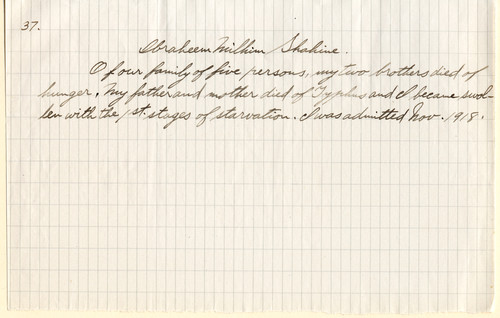 37.
Ibraheem Milhim Shahine.
Of our family of five persons, my two brothers died of
hunger. My father and mother died of Typhus and I became swol-
len with the 1st. stages of starvation. I was admitted Nov. 1918.